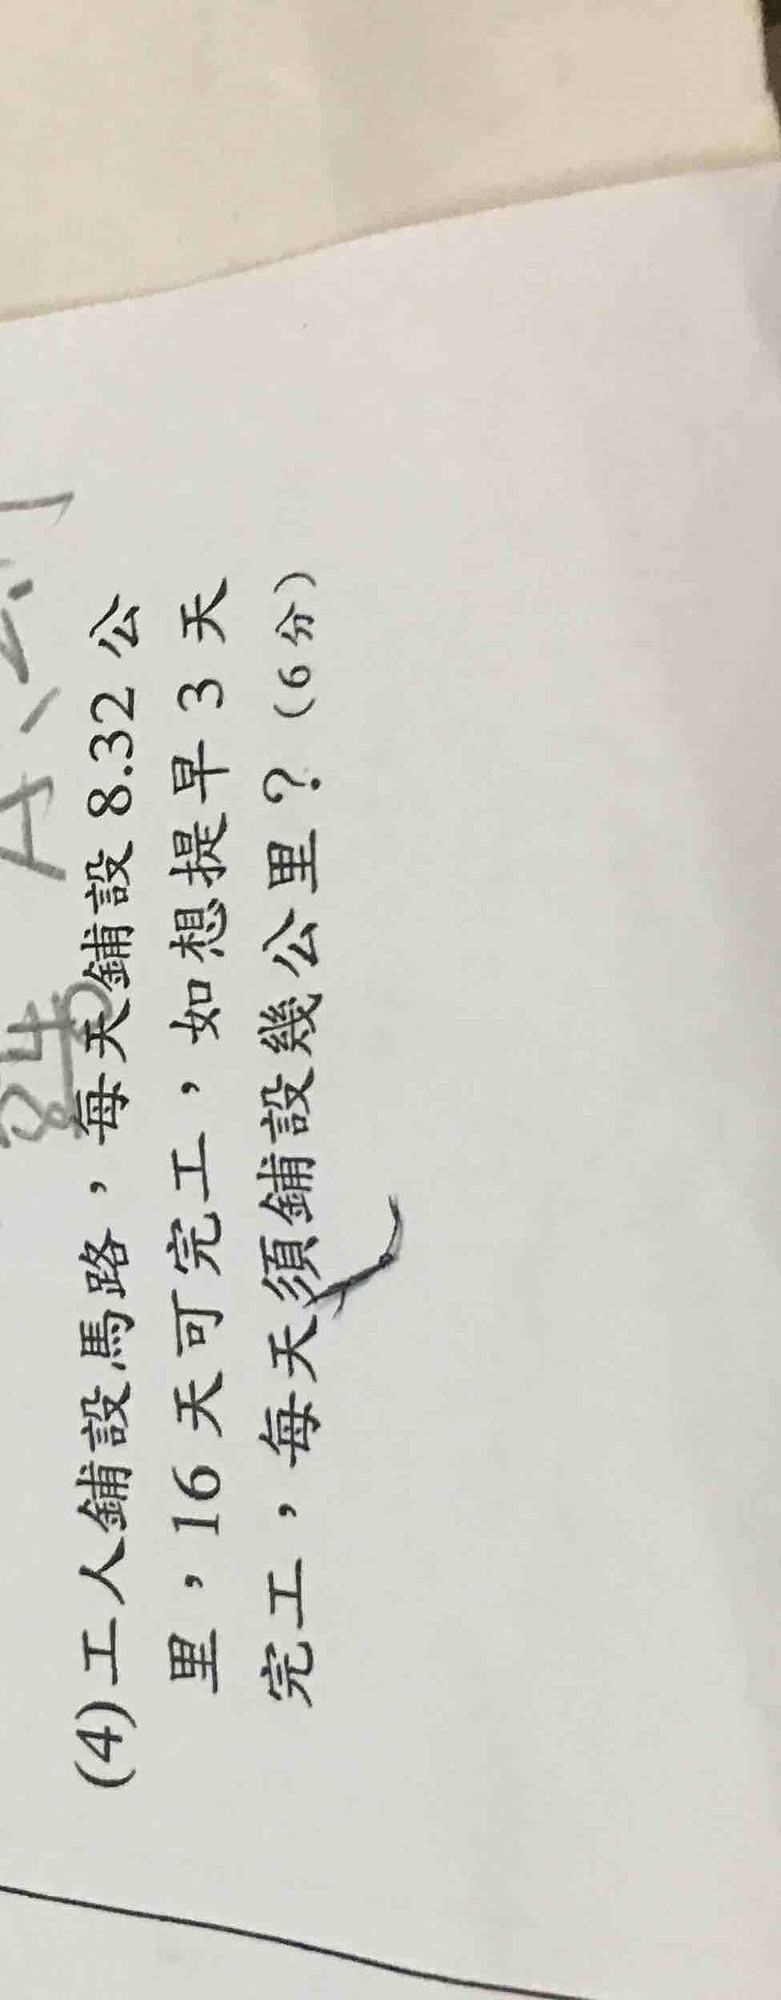 (4)工人鋪設馬路，每天鋪設8.32公
里，16天可完工，如想提早3天
完工，每天須鋪設幾公里？(6分)